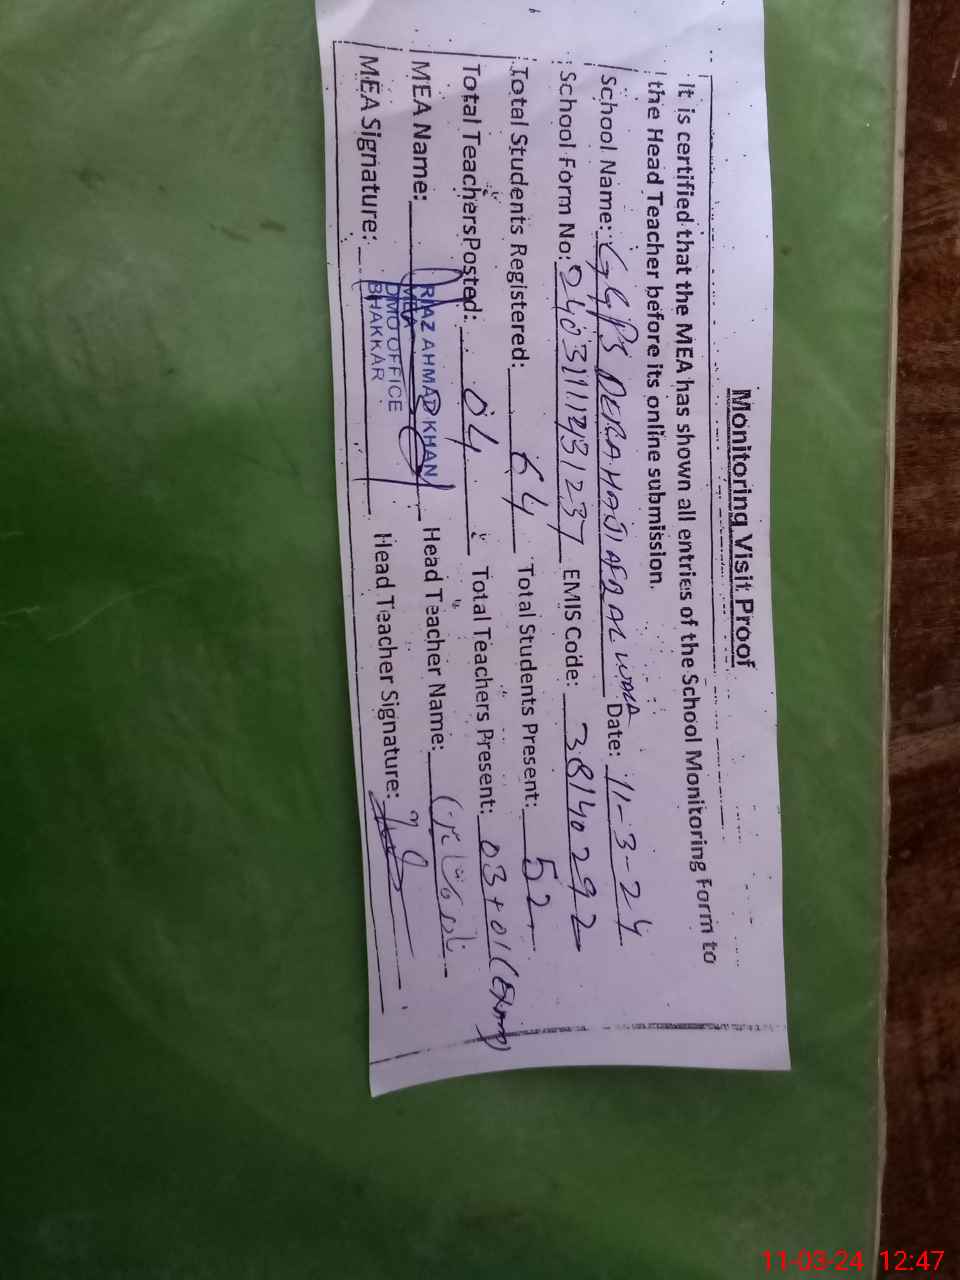 Monitoring Visit Proof
It is certified that the MEA has shown all entries of the School Monitoring Form to
the Head Teacher before its online submission.
School Name: GGPS DERA HAJI AFZAL WALA Date: 11-3-24
School Form No: EMIS Code: 38140292
Total Students Registered: 64 Total Students Present: 52
Total Teachers Posted: 04 Total Teachers Present: 03+01 (
MEA Name: RIAZ AHMAD KHAN Head Teacher Name:
MEA
DMO OFFICE
BHAKKAR
MEA Signature: Head Teacher Signature:
11-03-24 12:47